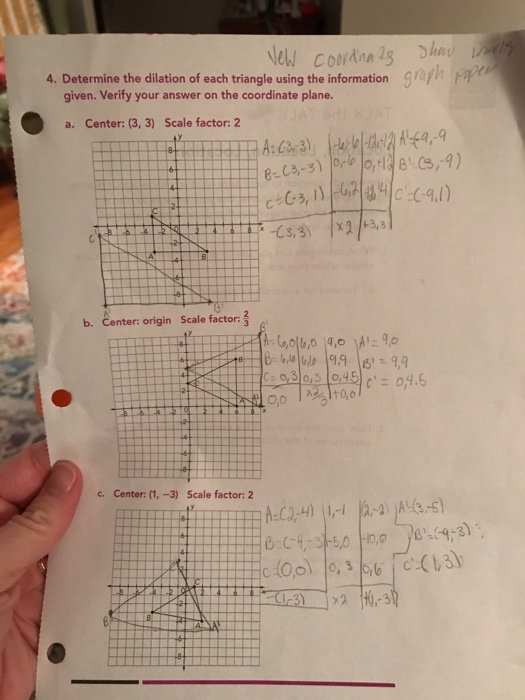 New Coordinats Show works
graph paper
4. Determine the dilation of each triangle using the information
given. Verify your answer on the coordinate plane.
a. Center: (3, 3) Scale factor: 2
A=(-3,-3) -6,-6 -12,-12 A'(-9,-9
B=(3,-3) 0,-6 0,-12 B'(3,-9)
C=(-3, 1) -6,2 C'=(-9,1)
-(3,3) x2 +3,3
b. Center: origin Scale factor: 2/3
A=6,0 6,0 9,0 A'=9,0
B=6,6 6,6 9,9 B'=9,9
C=0,3 0,3 0,4.5 C'=0,4.5
0,0 +0,0
c. Center: (1, −3) Scale factor: 2
A=(2,-4) 1,-1 (2,-2) A'(3,-5)
B=(-4,-3) -5,0 -10,0 B'=(-9,-3)
C=(0,0) 0,6 C'=(1,3)
-(1,-3) x2 +(1,-3)